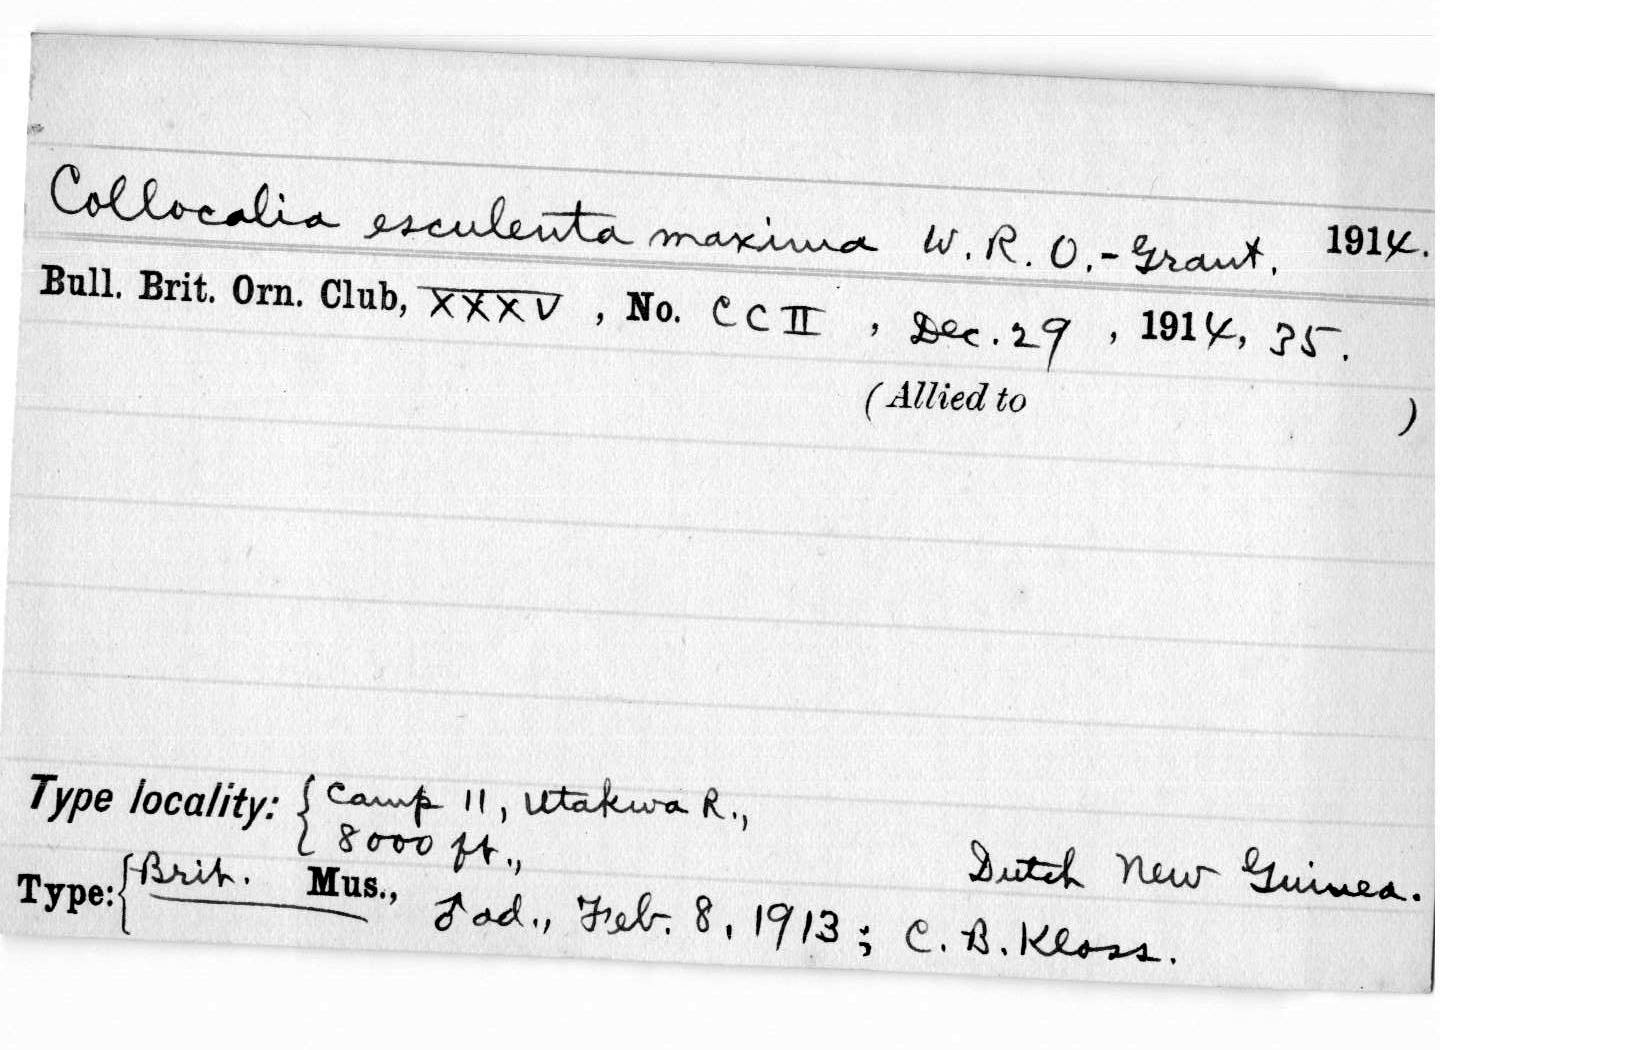 Collocalia esculenta maxima W. R. O.-Grant. 1914.
Bull. Brit. Orn. Club, XXXV, No. CCII, Dec. 29, 1914, 35.
(Allied to )
Type locality: { Camp 11, Utakwa R.,
8000 ft.,
Dutch New Guinea.
Type: { Brit. Mus., ♂ ad., Feb. 8, 1913; C. B. Kloss.